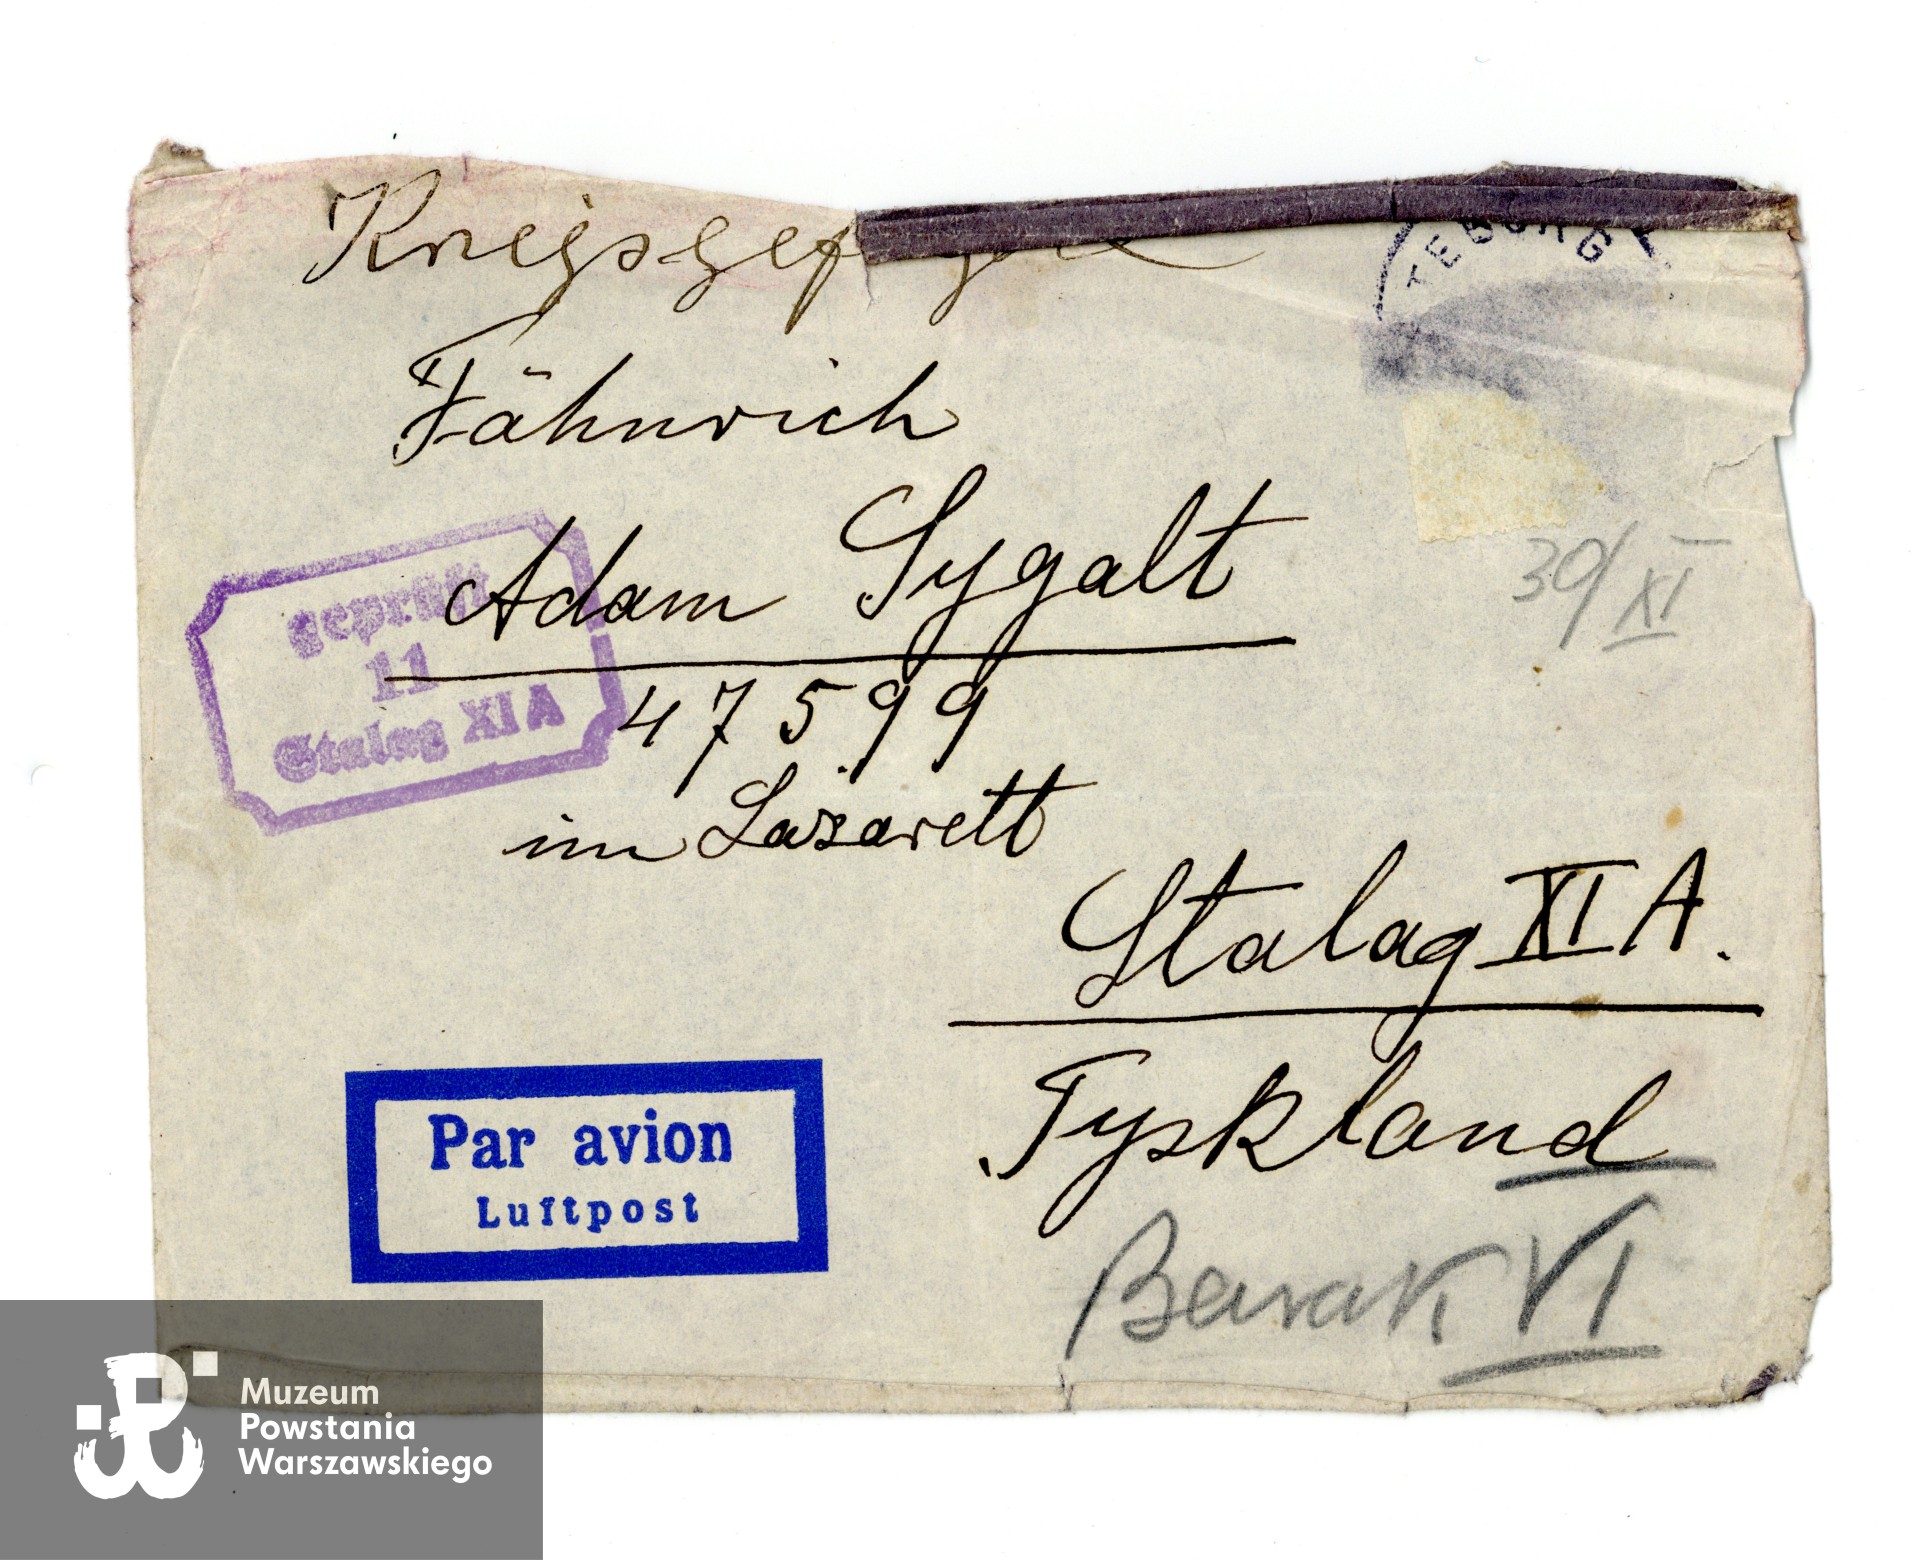 Kriegsgef
TEBORG
Fähnrich
Adam Sygalt
47599
im Lazarett
geprüft
11
Stalag XI A
30/XI
Stalag XI A.
Tyskland
Par avion
Luftpost
Barak VI
Muzeum
Powstania
Warszawskiego